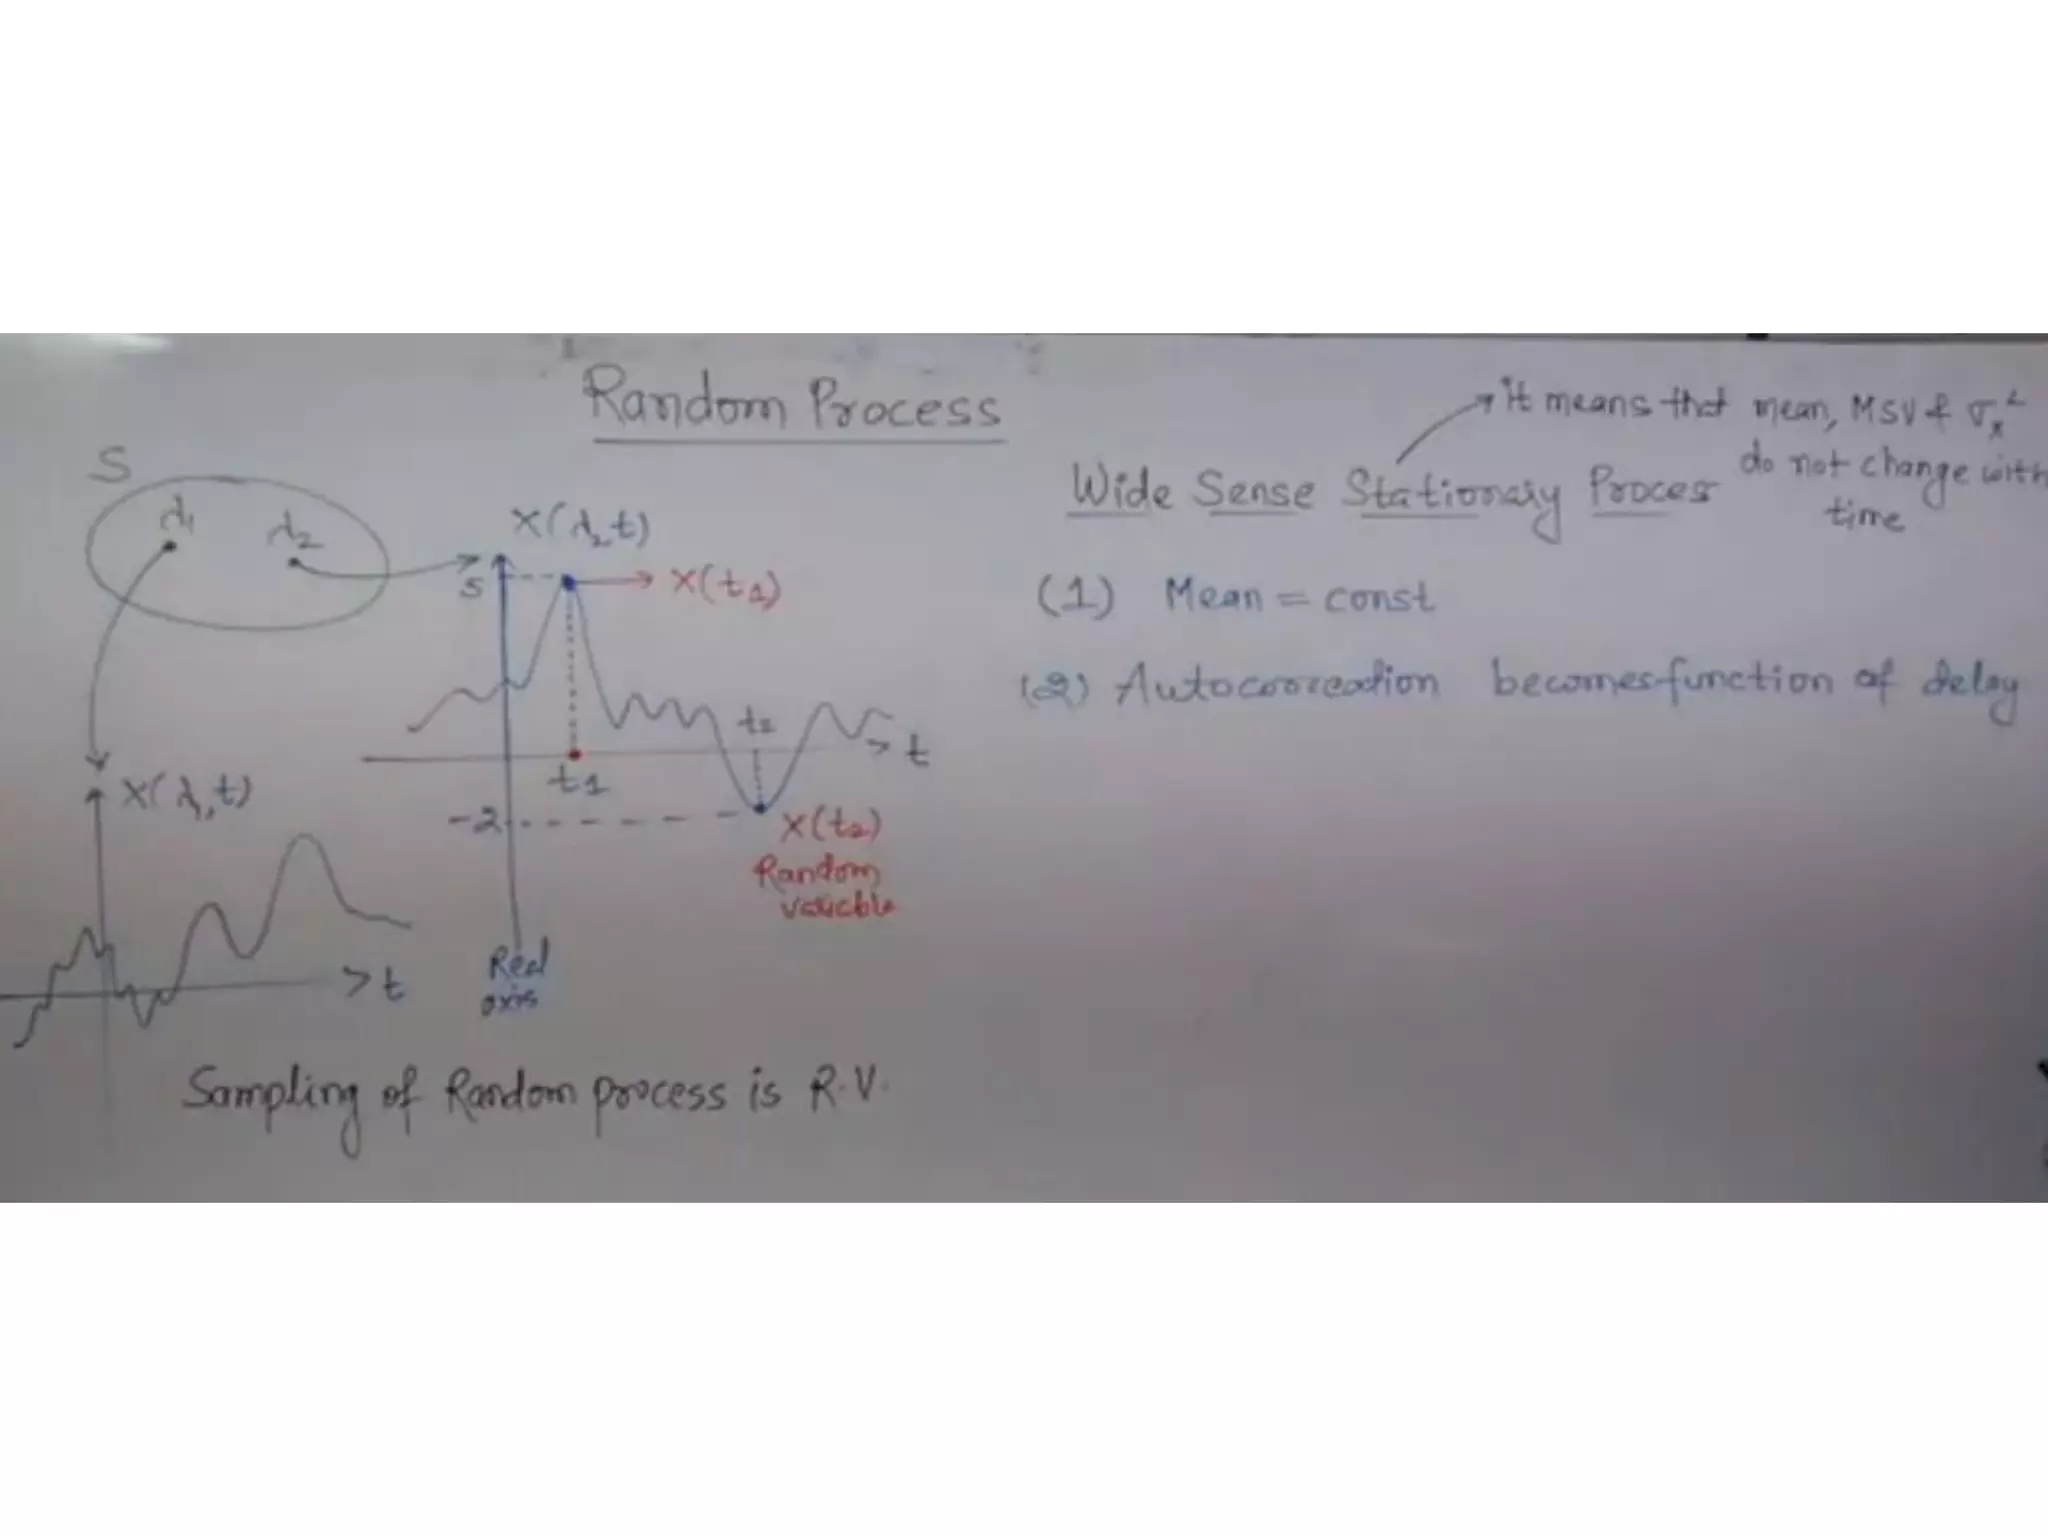 Random Process
S
λ1
λ2
X(λ2,t)
5
X(t1)
t2
t
t1
-2
X(t2)
Random
variable
Real
axis
X(λ1,t)
t
Sampling of Random process is R.V.
it means that mean, MSV & σx²
do not change with
time
Wide Sense Stationary Process
(1) Mean = const
(2) Autocorreation becomes function of delay